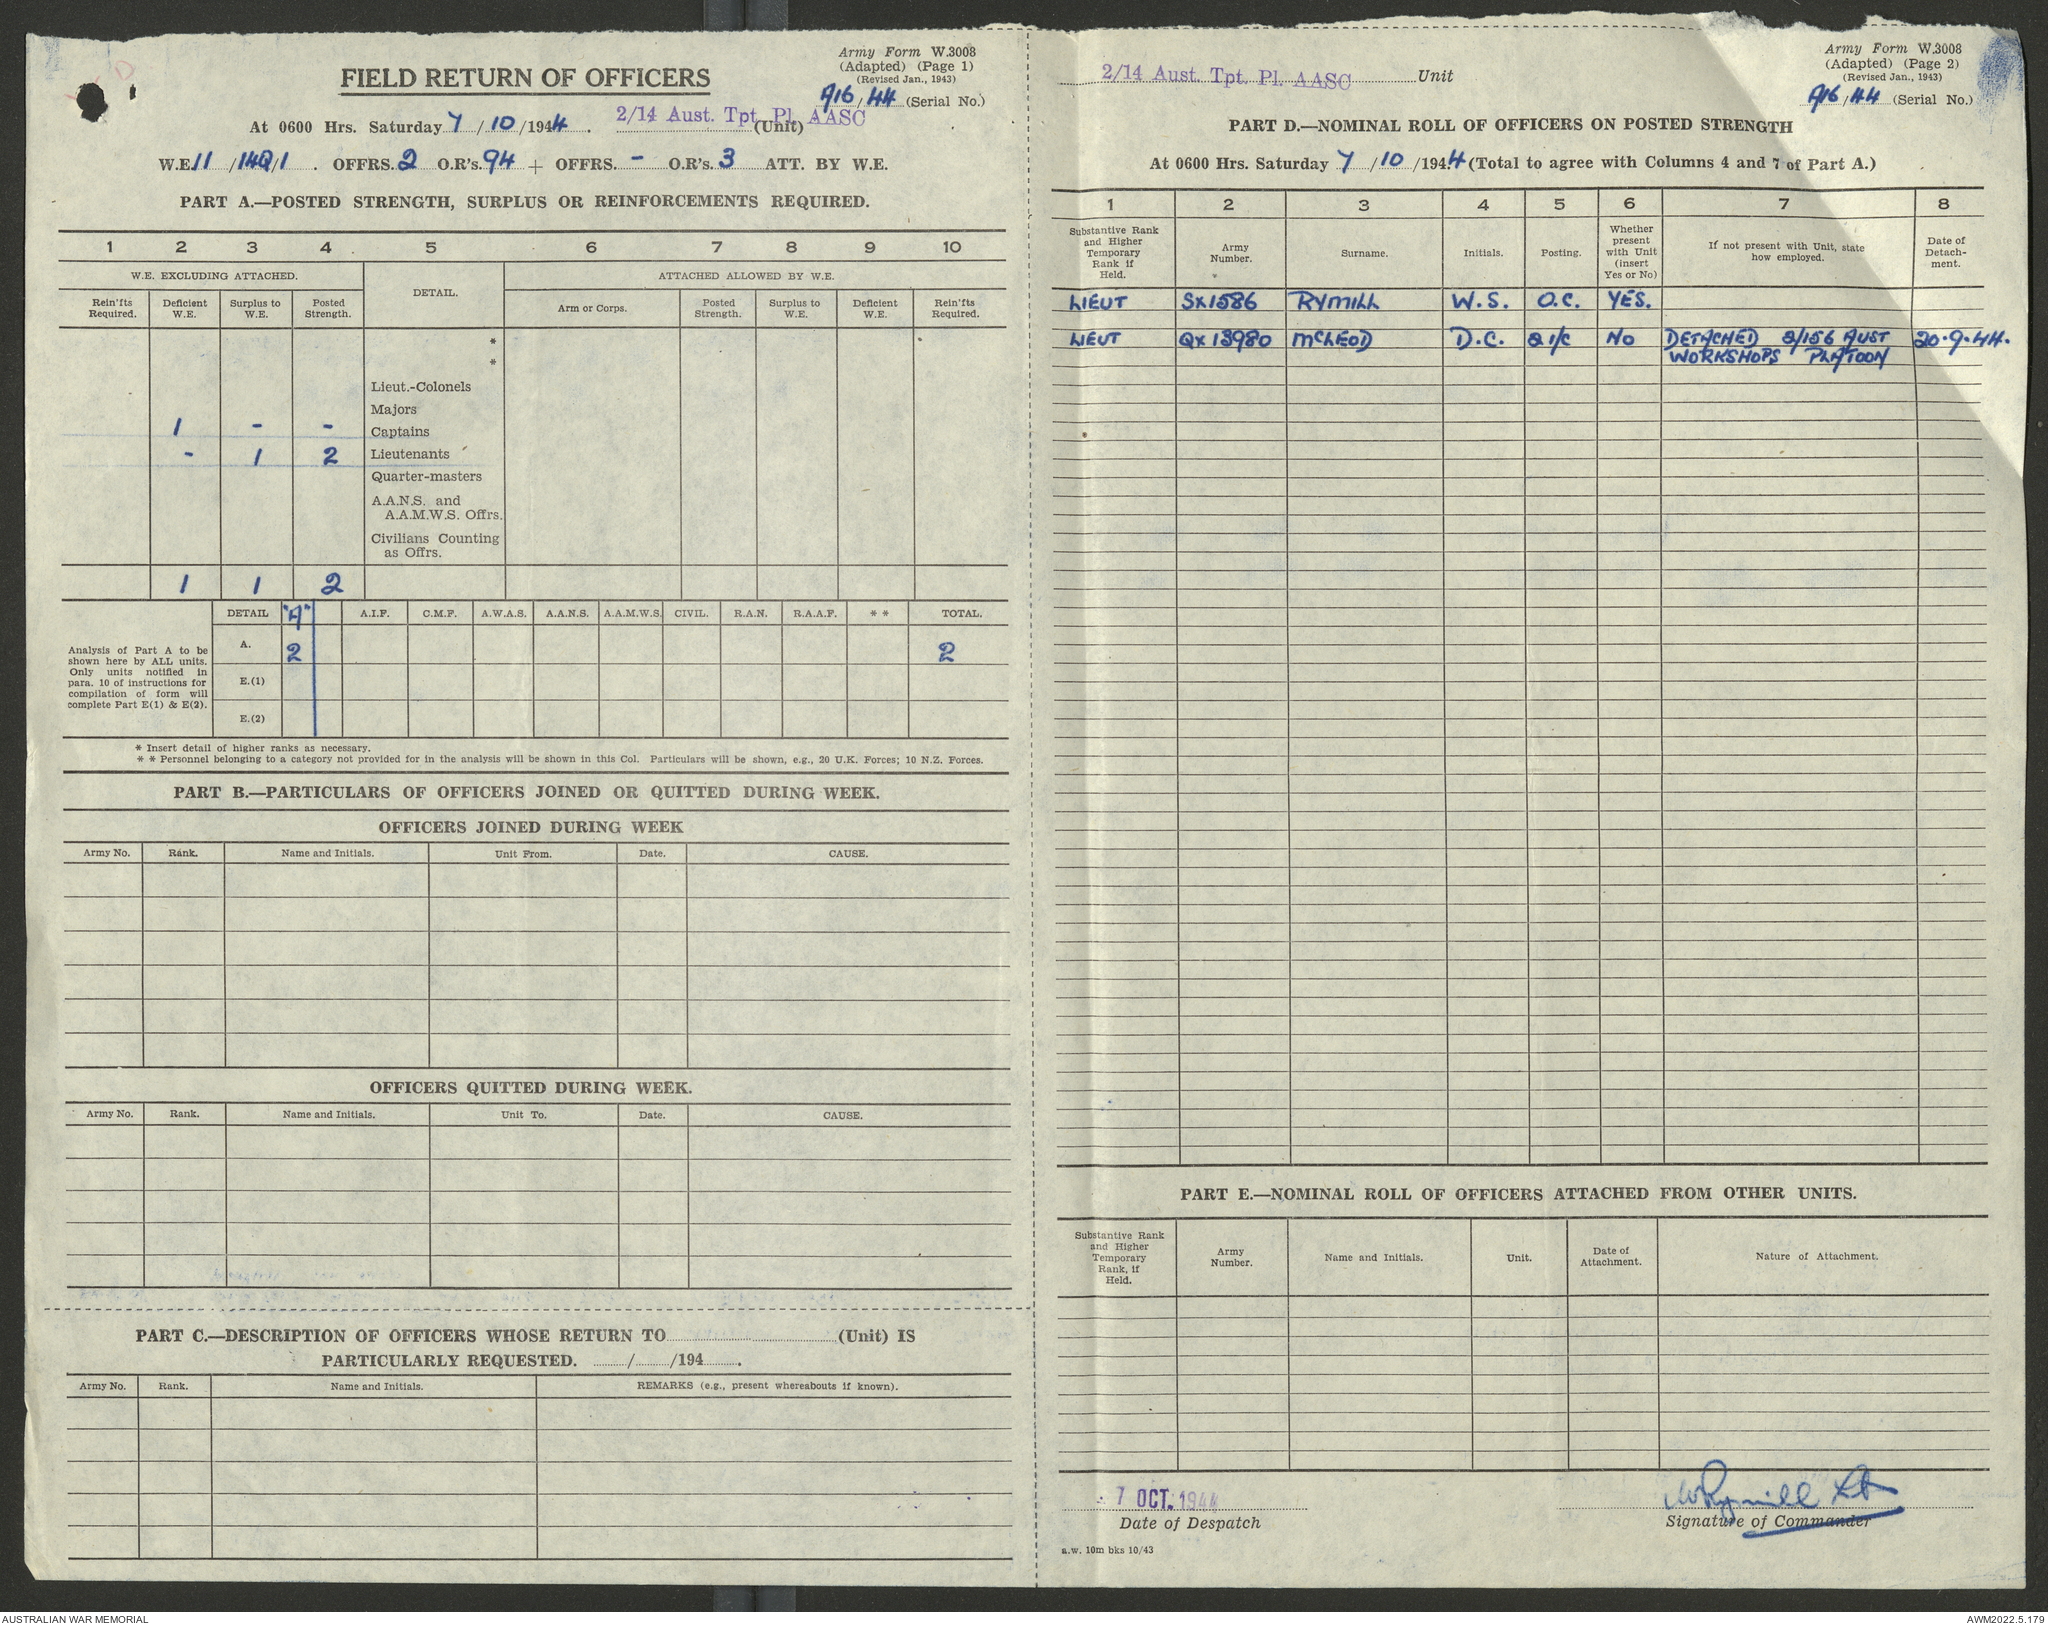 Army Form W.3008
(Adapted) (Page 1)
(Revised Jan., 1943)
FIELD RETURN OF OFFICERS
A16/44 (Serial No.)
At 0600 Hrs. Saturday 7/10/1944. 2/14 Aust. Tpt. Pl. AASC (Unit)
W.E. 11/14Q/1. OFFRS. 2 O.R's. 94 + OFFRS. - O.R's. 3 ATT. BY W.E.
PART A.—POSTED STRENGTH, SURPLUS OR REINFORCEMENTS REQUIRED.
1 2 3 4 5 6 7 8 9 10
W.E. EXCLUDING ATTACHED. DETAIL. ATTACHED ALLOWED BY W.E.
Rein'fts Required. Deficient W.E. Surplus to W.E. Posted Strength. Arm or Corps. Posted Strength. Surplus to W.E. Deficient W.E. Rein'fts Required.
*
*
Lieut.-Colonels
Majors
1 - - Captains
- 1 2 Lieutenants
Quarter-masters
A.A.N.S. and
A.A.M.W.S. Offrs.
Civilians Counting
as Offrs.
1 1 2
DETAIL "A" A.I.F. C.M.F. A.W.A.S. A.A.N.S. A.A.M.W.S. CIVIL. R.A.N. R.A.A.F. * * TOTAL.
Analysis of Part A to be
shown here by ALL units.
Only units notified in
para. 10 of instructions for
compilation of form will
complete Part E(1) & E(2).
A. 2 2
E.(1)
E.(2)
* Insert detail of higher ranks as necessary.
* * Personnel belonging to a category not provided for in the analysis will be shown in this Col. Particulars will be shown, e.g., 20 U.K. Forces; 10 N.Z. Forces.
PART B.—PARTICULARS OF OFFICERS JOINED OR QUITTED DURING WEEK.
OFFICERS JOINED DURING WEEK
Army No. Rank. Name and Initials. Unit From. Date. CAUSE.
OFFICERS QUITTED DURING WEEK.
Army No. Rank. Name and Initials. Unit To. Date. CAUSE.
PART C.—DESCRIPTION OF OFFICERS WHOSE RETURN TO (Unit) IS
PARTICULARLY REQUESTED. / /194 .
Army No. Rank. Name and Initials. REMARKS (e.g., present whereabouts if known).
Army Form W.3008
(Adapted) (Page 2)
(Revised Jan., 1943)
2/14 Aust. Tpt. Pl. AASC Unit
A16/44 (Serial No.)
PART D.—NOMINAL ROLL OF OFFICERS ON POSTED STRENGTH
At 0600 Hrs. Saturday 7/10/1944 (Total to agree with Columns 4 and 7 of Part A.)
1 2 3 4 5 6 7 8
Substantive Rank and Higher Temporary Rank if Held. Army Number. Surname. Initials. Posting. Whether present with Unit (insert Yes or No) If not present with Unit, state how employed. Date of Detach-ment.
LIEUT SX1586 RYMILL W.S. O.C. YES.
LIEUT QX13980 McLEOD D.C. 2 i/c NO DETACHED 2/156 AUST 20.9.44.
WORKSHOPS PLATOON
PART E.—NOMINAL ROLL OF OFFICERS ATTACHED FROM OTHER UNITS.
Substantive Rank and Higher Temporary Rank, if Held. Army Number. Name and Initials. Unit. Date of Attachment. Nature of Attachment.
7 OCT. 1944 WRymill Lt
Date of Despatch Signature of Commander
a.w. 10m bks 10/43
AUSTRALIAN WAR MEMORIAL AWM2022.5.179